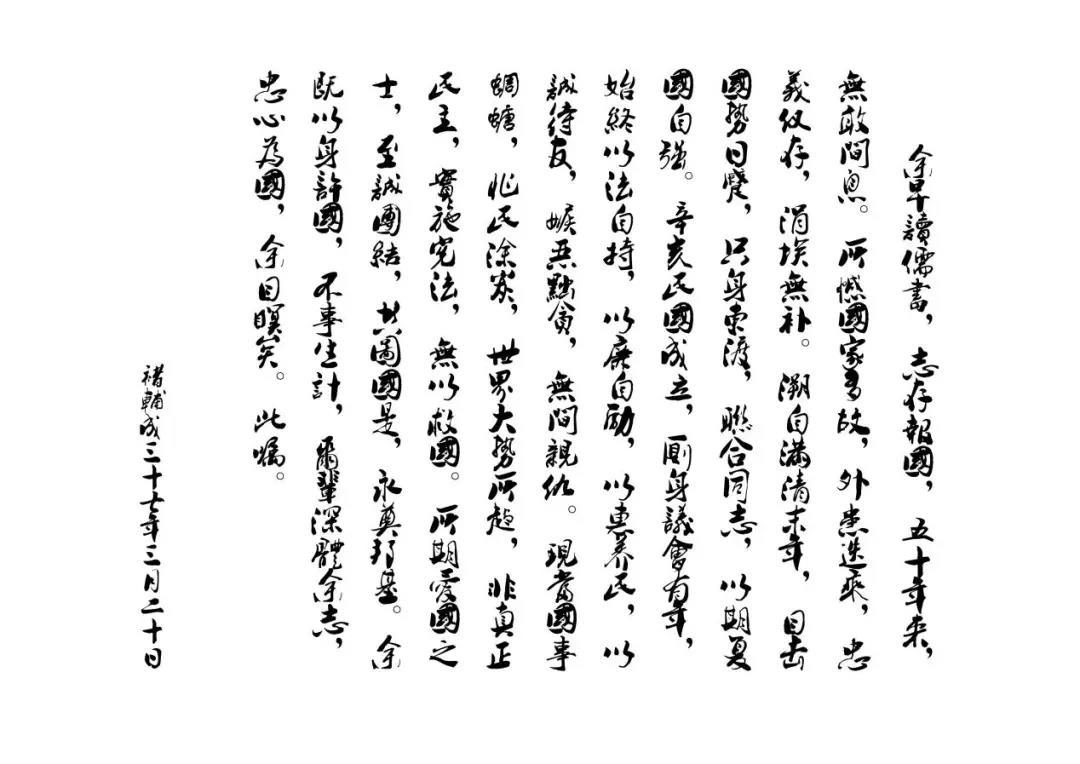 余早讀儒書，志存報國，五十年来，
無敢間息。所憾國家多故，外患迭乘，忠
義仅存，涓埃無补。溯自满清末年，目击
國勢日蹙，只身東渡，聯合同志，以期夏
國自强。辛亥民國成立，厠身議會有年，
始終以法自持，以廉自励，以惠养民，以
誠待友，嫉恶點貪，無间親仇。現當國事
蜩螗，兆民涂炭，世界大勢所趋，非真正
民主，實施宪法，無以救國。所期愛國之
士，至誠團結，共圖國是，永奠邦基。余
既以身許國，不事生計，爾輩深體余志，
忠心為國，余目瞑矣。此嘱。
褚輔成三十七年三月二十日